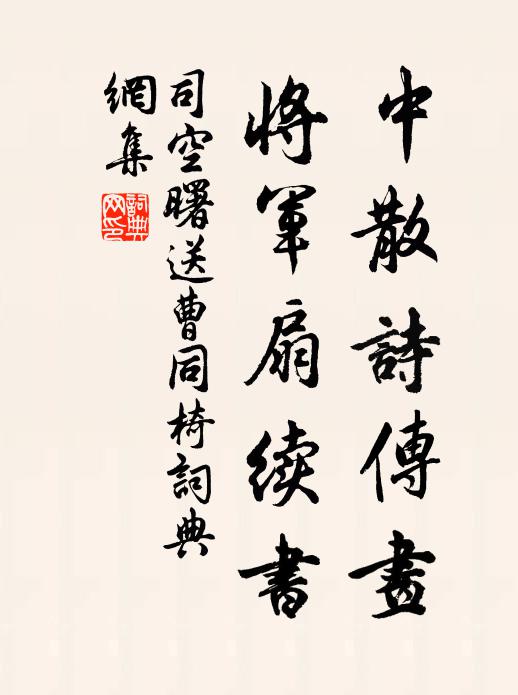 中散詩傳畫
將軍扇续書
司空曙送曹同椅詞典
網集
詞典
网印